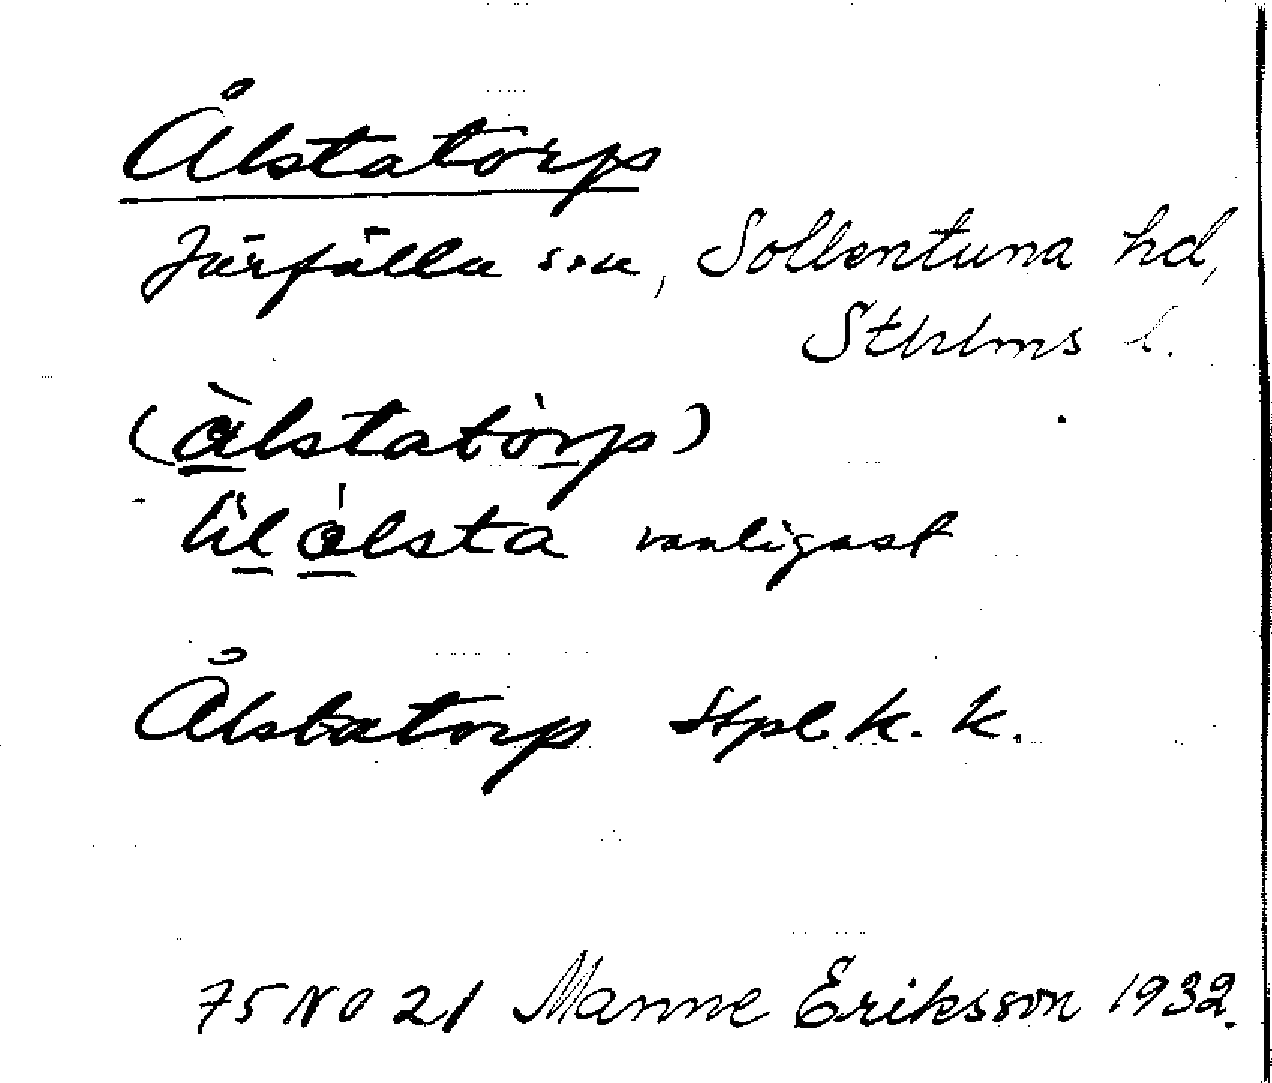 Ålstatorp
Järfälla sn, Sollentuna hd,
Sthlms l.
(àlstatòrp)
lilålsta vanligast
Ålstatorp Stpl. k. k.
75 NO 21 Manne Eriksson 1932.